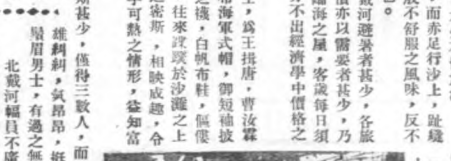 而赤足行沙上，趾縫
般不舒服之風味，反不
也。
戴河避暑者甚少，各旅
價亦以需要者甚少，乃
臨海之屋，客歲每日須
不出經濟學中價格之
，爲王揖唐，曹汝霖
希海軍式帽，御短袖披
之襪，白帆布鞋，傴僂
往來蹀躞於沙灘之上
密斯，相映成趣，令
可熱之情形，益知富
甚少，僅得三數人，而
雄糾糾，氣昂昂，挺
鬚眉男士，有過之無
北戴河幅員不廣